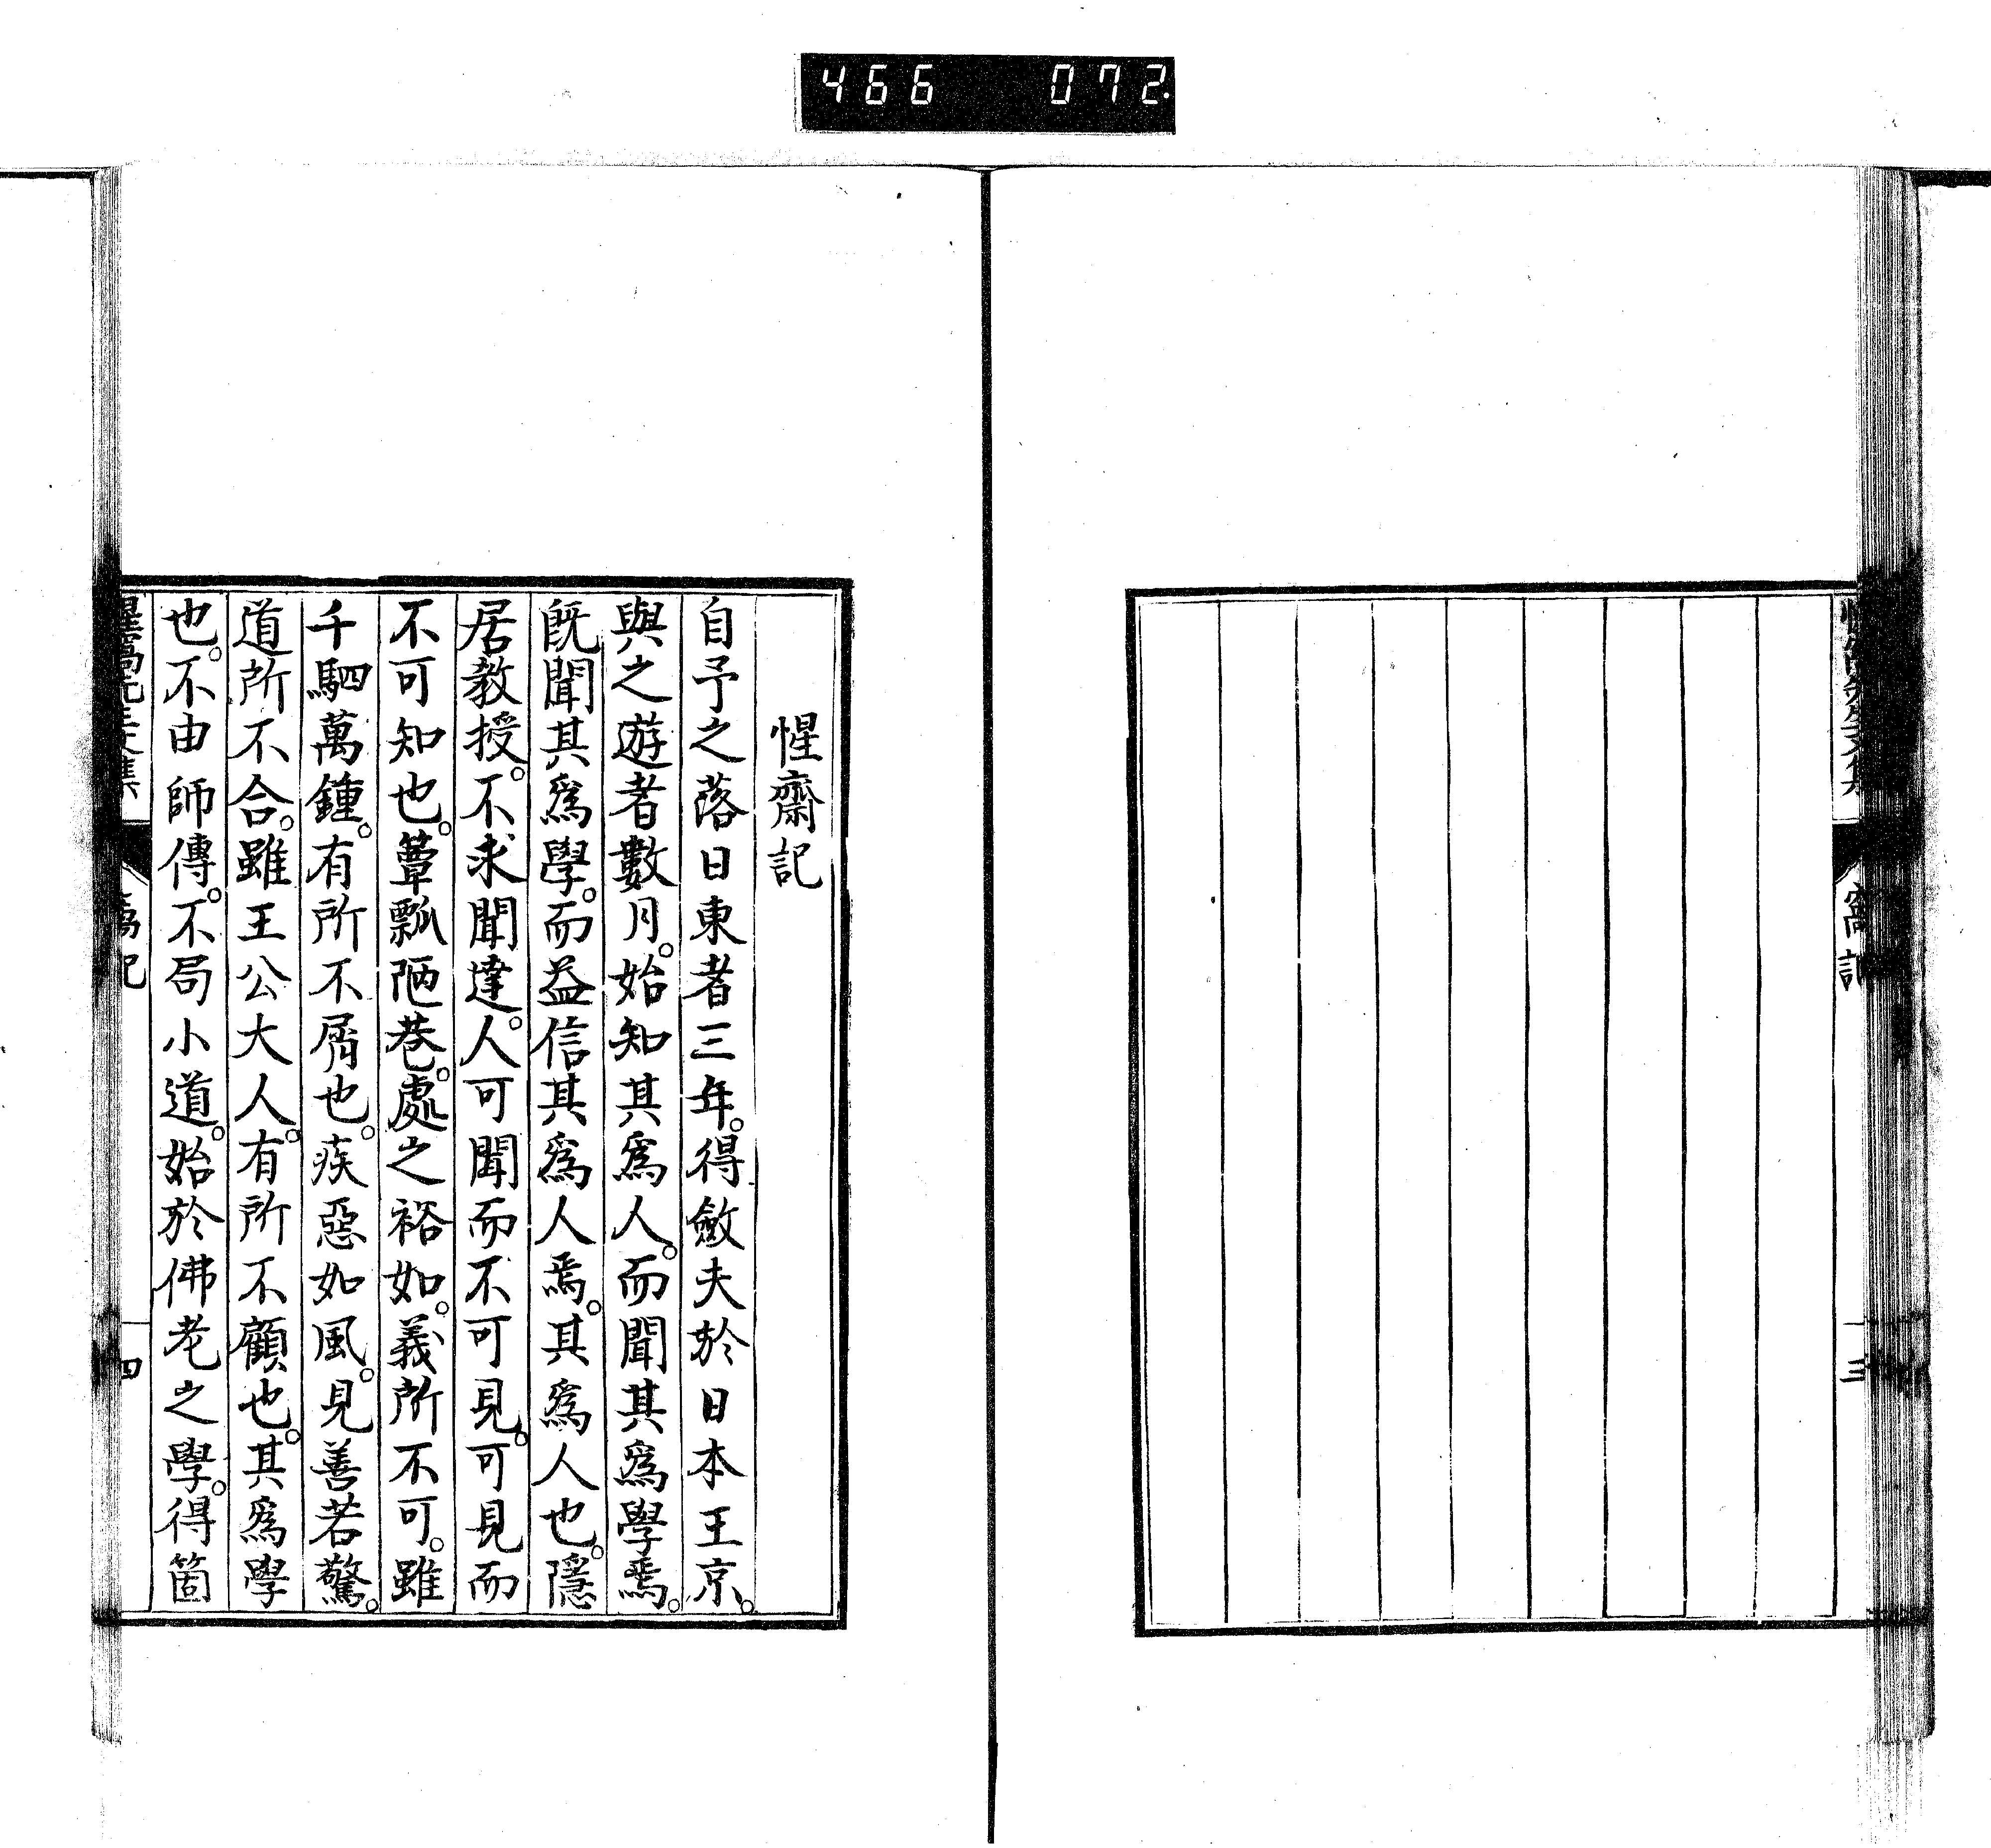 466 072
窩記
三
惺齋記
自予之落日東者三年。得斂夫於日本王京。
與之遊者數月。始知其爲人。而聞其爲學焉。
既聞其爲學。而益信其爲人焉。其爲人也。隱
居教授。不求聞達。人可聞而不可見。可見而
不可知也。簞瓢陋巷。處之裕如。義所不可。雖
千駟萬鍾。有所不屑也。疾惡如風。見善若驚。
道所不合。雖王公大人。有所不顧也。其爲學
也。不由師傳。不局小道。始於佛老之學。得箇
窩記
四